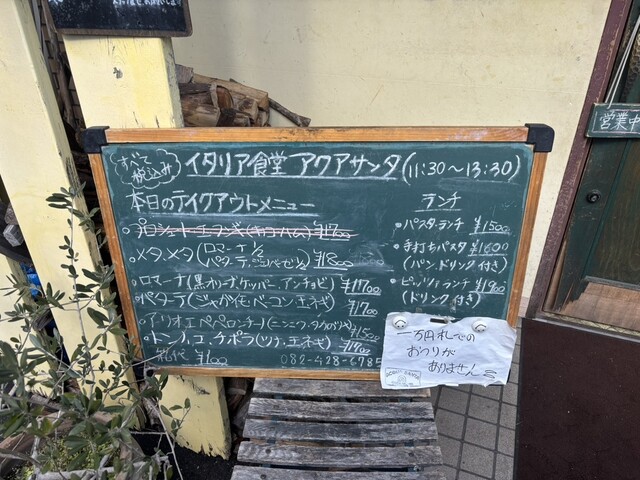 すべて
税込み
イタリア食堂 アクアサンタ (11:30～13:30)
本日のテイクアウトメニュー
メタ,メタ (ロマーナ1/2
¥1800
ロマーナ (黒オリーブ,ケッパー,アンチョビ) ¥1700
パターテ (ジャガイモ,ベーコン,エネゼ) ¥1700
アーリオ エ ペペロンチーノ (ニンニク,タカのツメ) ¥1500
トンノ,コ,チポラ (ツナ,エネゼ) ¥1900
箱代 ¥100
082-428-6785
ランチ
・パスタランチ ¥1500
・手打ちパスタ ¥1600
(パン,ドリンク付き)
・ピッツァランチ ¥1900
(ドリンク付き)
一万円札での
おつりが
ありません
営業中